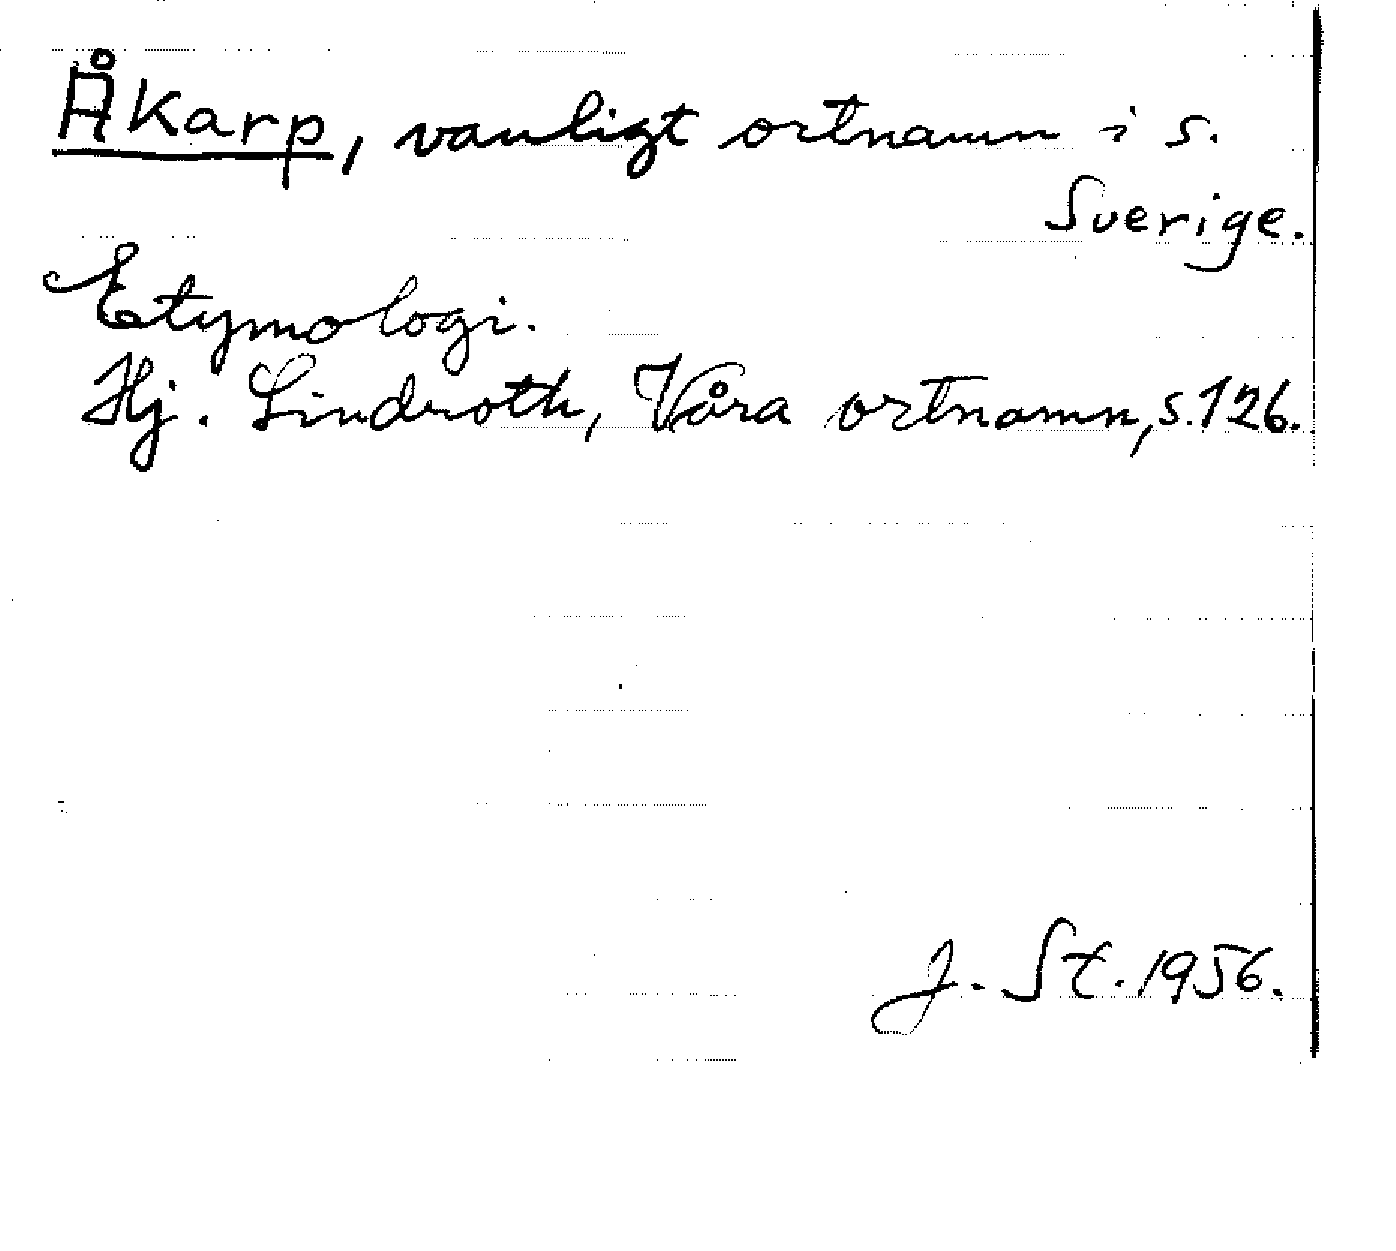 Åkarp, vanligt ortnamn i s.
Sverige.
Etymologi.
Hj. Lindroth, Våra ortnamn, s. 126.
J. St. 1956.